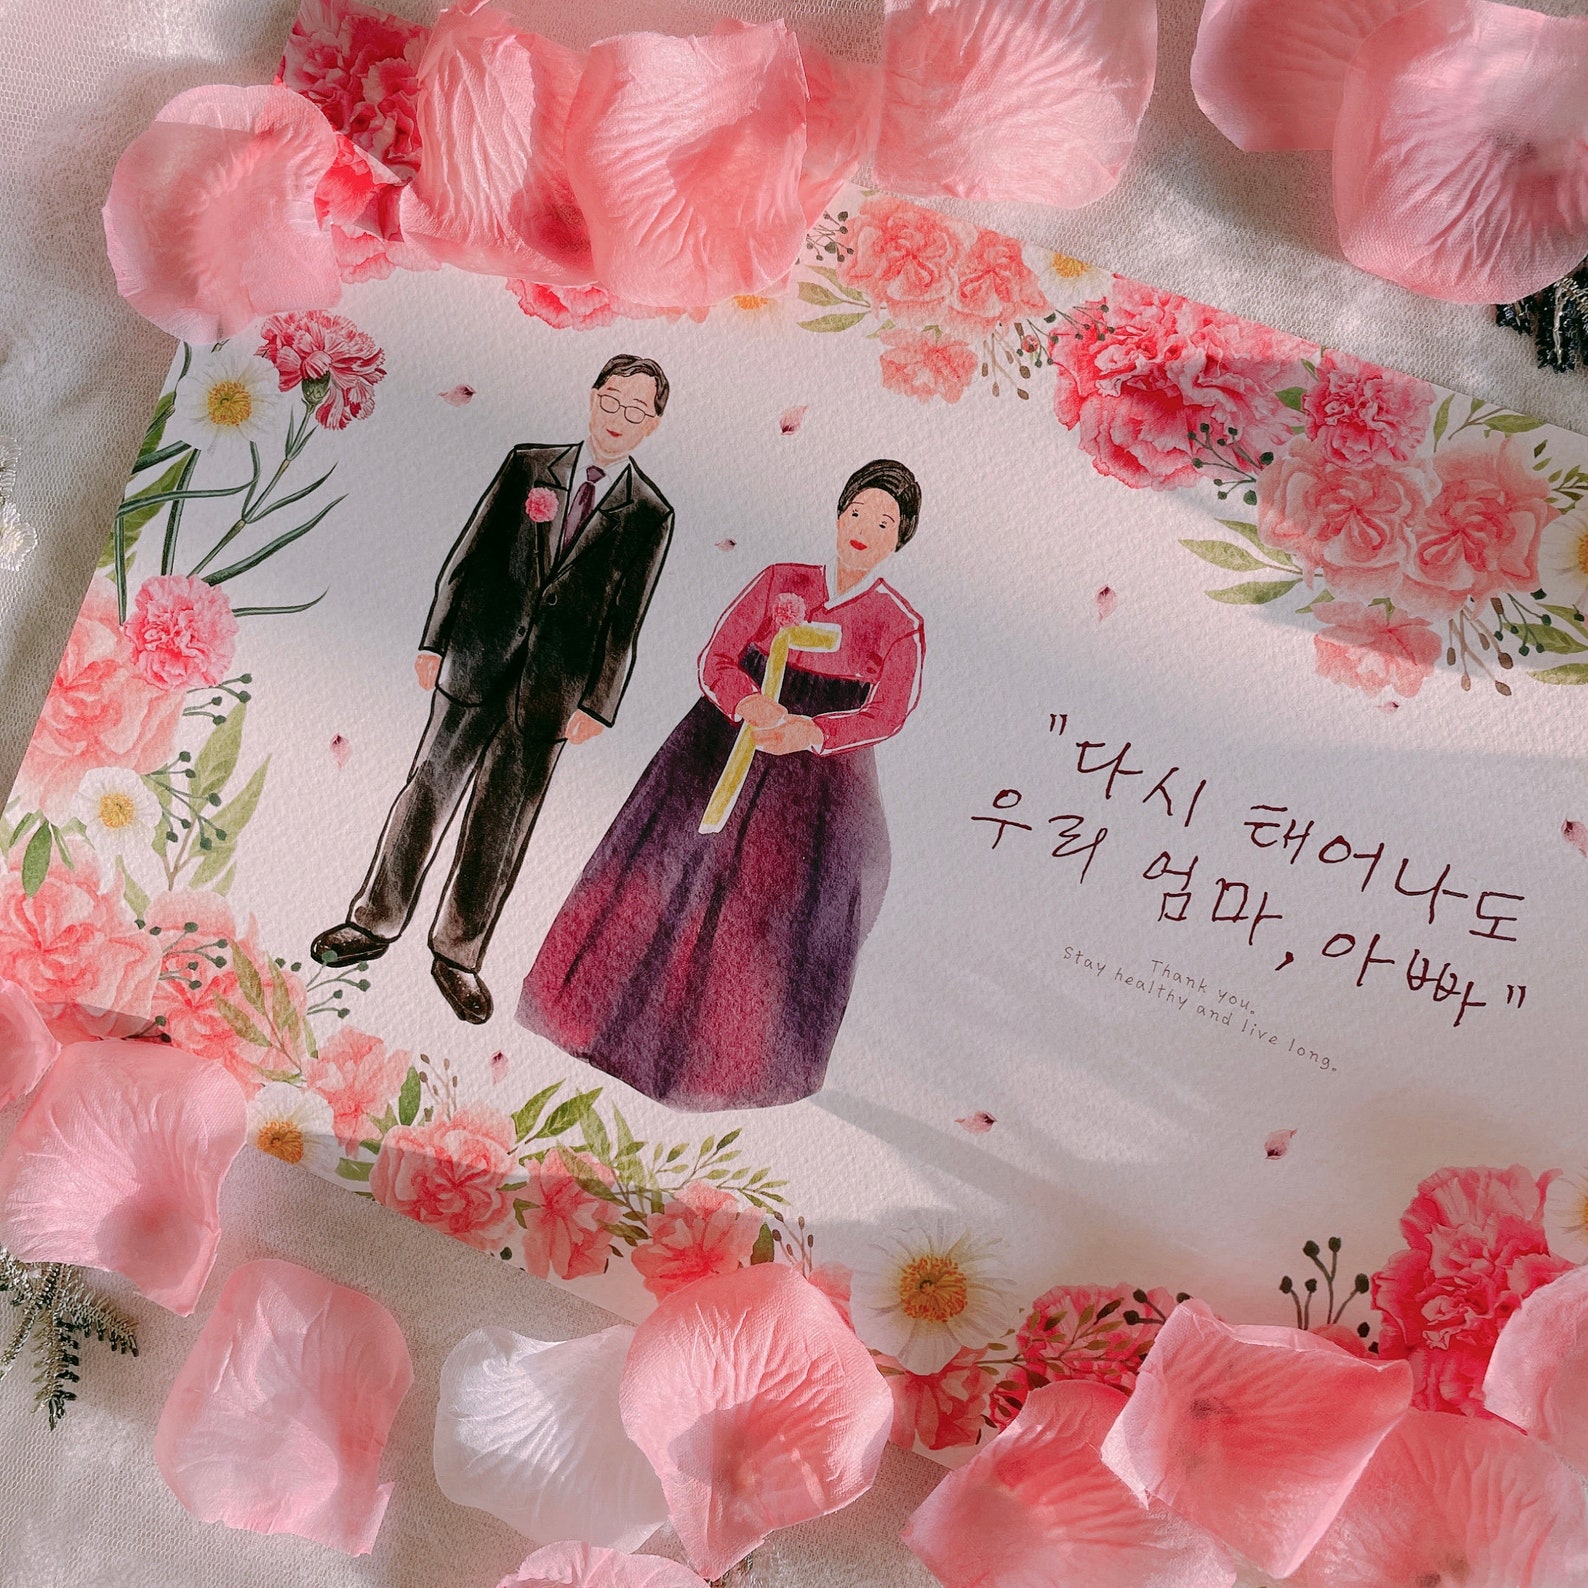 "다시 태어나도
우리 엄마, 아빠"
Thank you.
Stay healthy and live long.